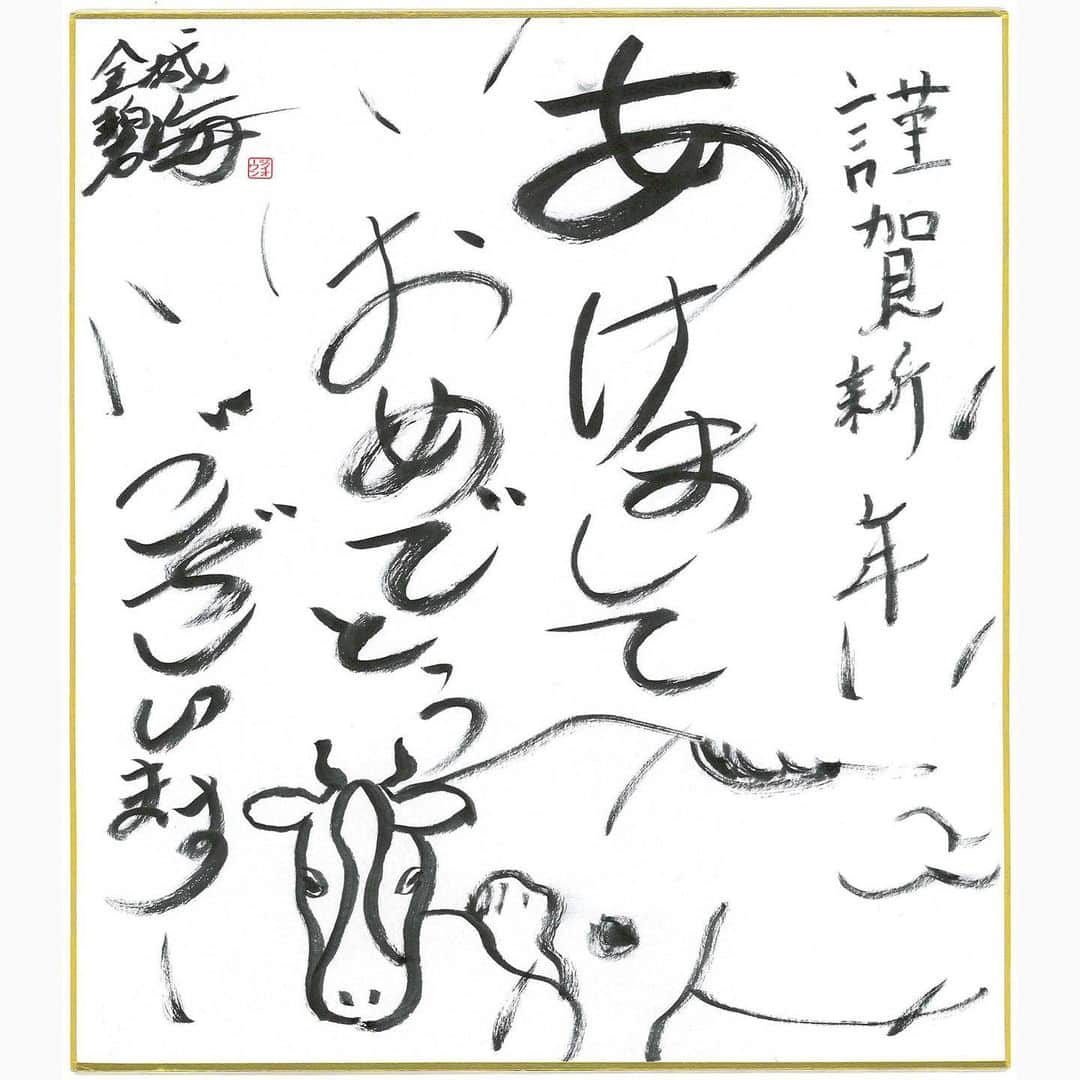 謹賀新年
あけまして
おめでとう
ございます
金城
碧海